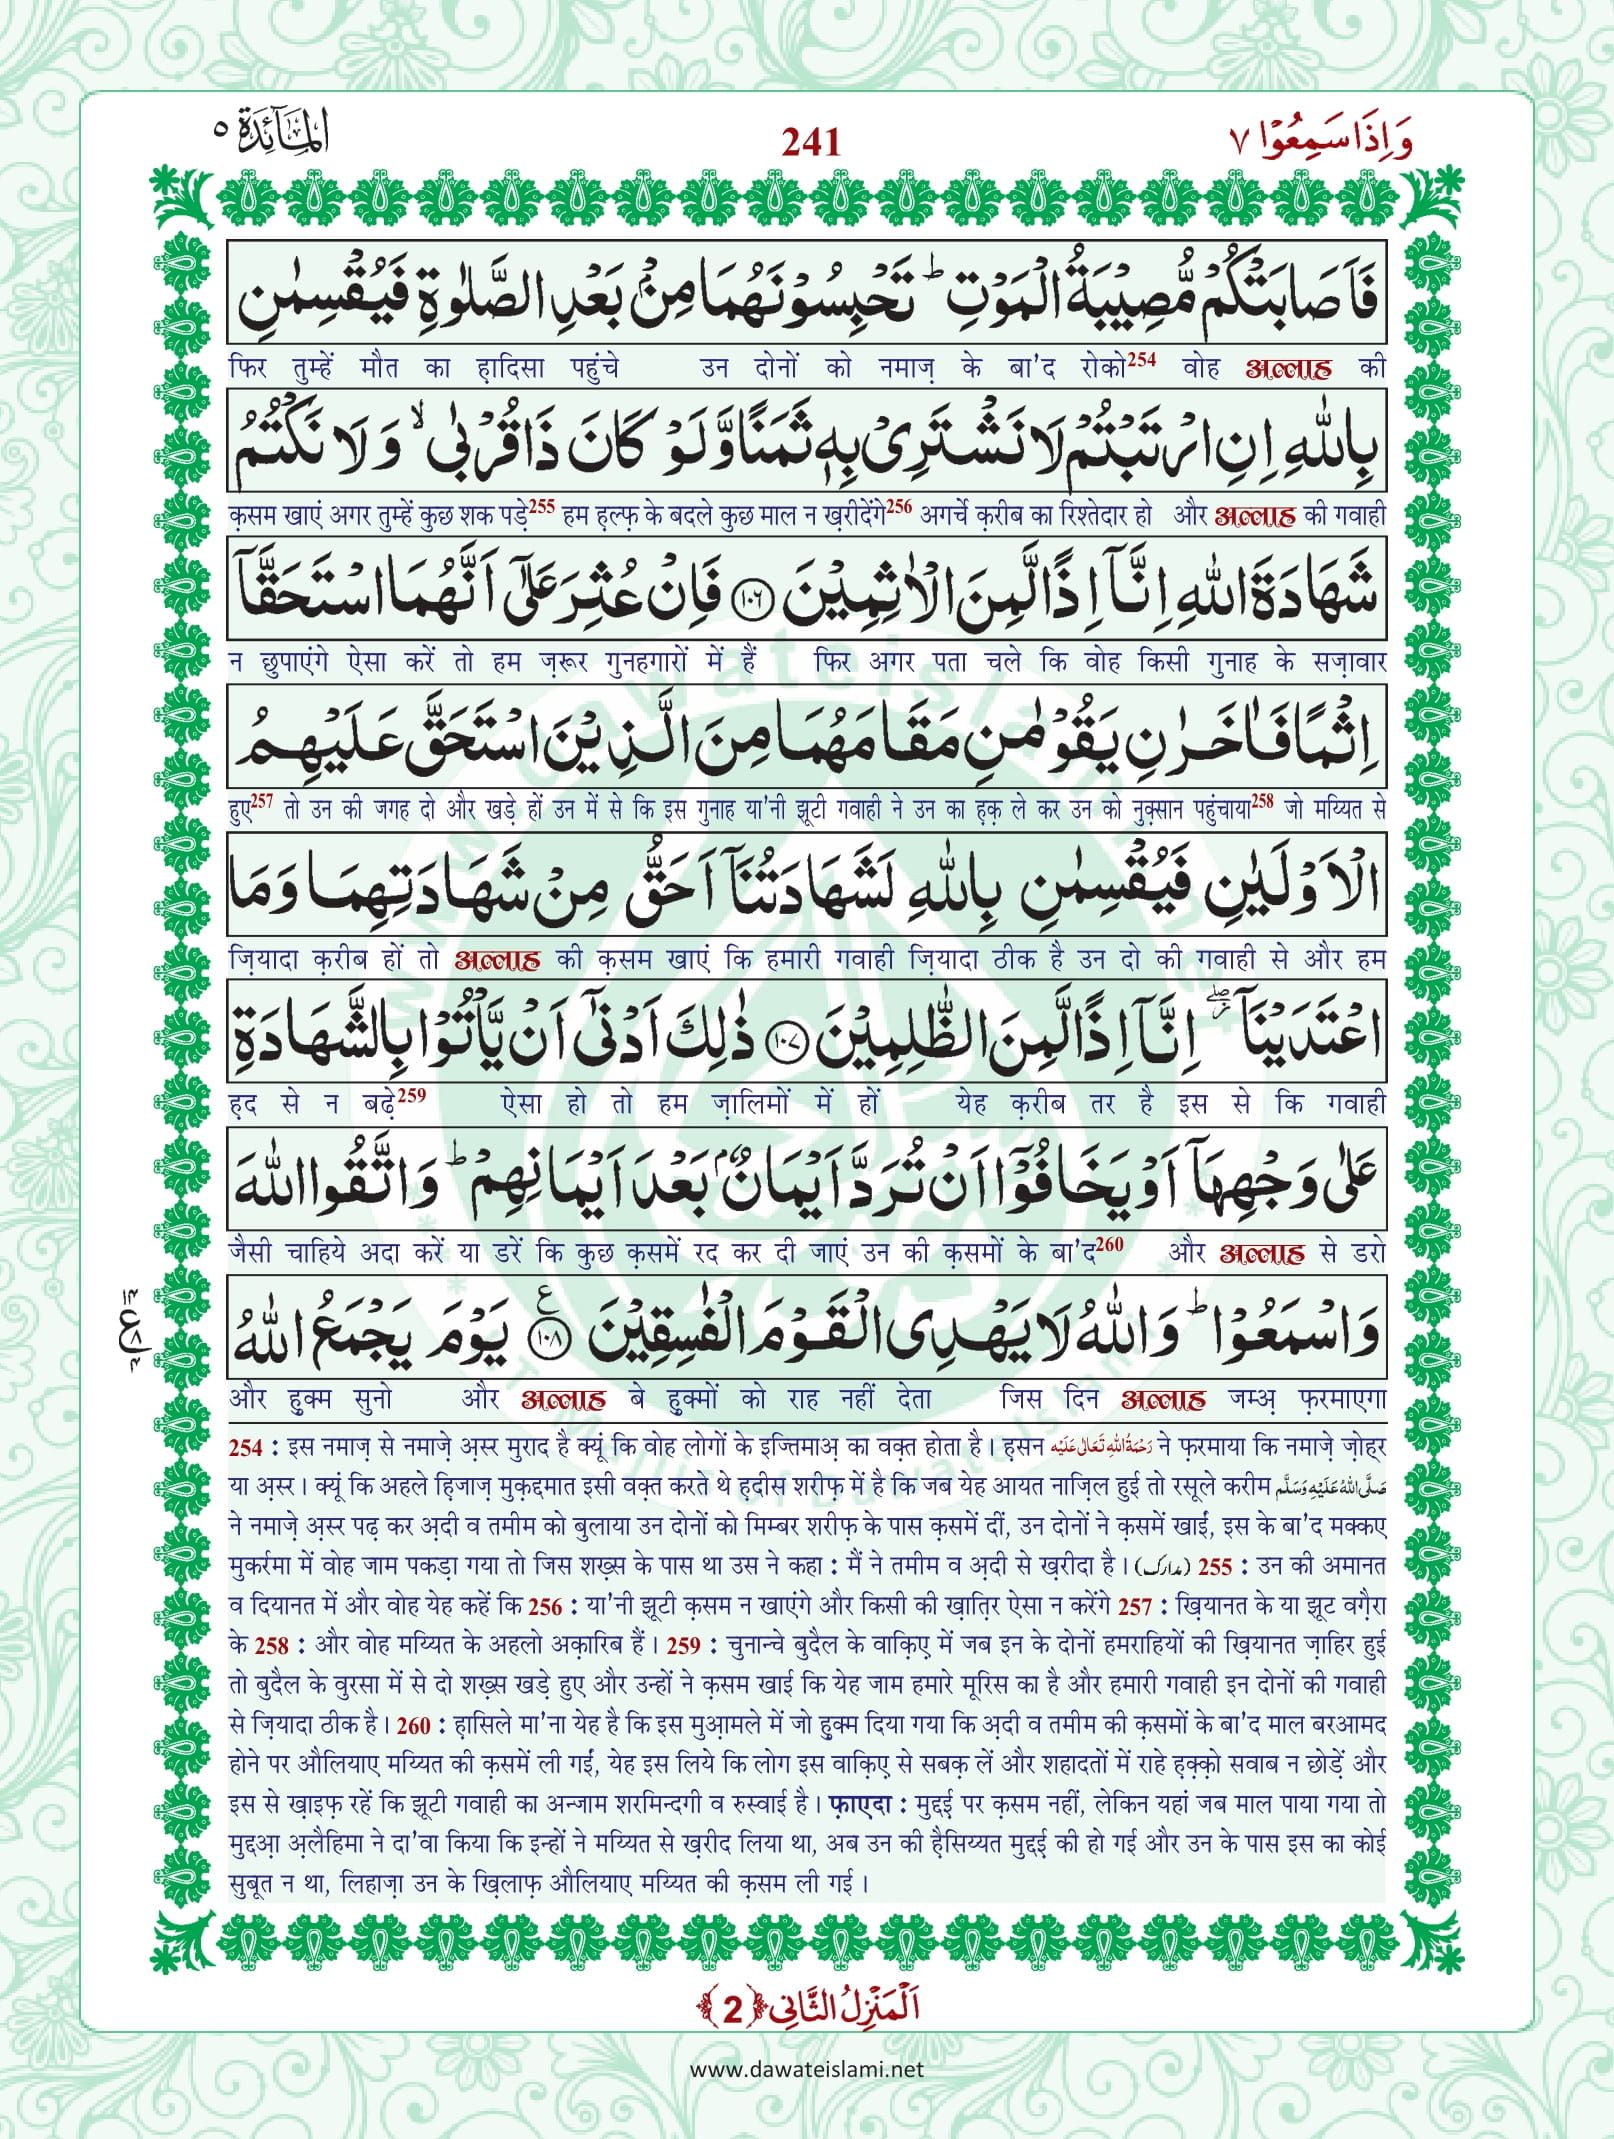 وَاِذَا سَمِعُوْا ٧
241
اَلْمَآئِدَة ٥
فَاَصَابَتْكُمْ مُّصِيْبَةُ الْمَوْتِ ؕ تَحْبِسُوْنَهُمَا مِنْۢ بَعْدِ الصَّلٰوةِ فَيُقْسِمٰنِ
फिर तुम्हें मौत का ह़ादिसा पहुंचे उन दोनों को नमाज़ के बा'द रोको254 वोह अल्लाह की
بِاللّٰهِ اِنِ ارْتَبْتُمْ لَا نَشْتَرِیْ بِهٖ ثَمَنًا وَّلَوْ كَانَ ذَا قُرْبٰى ۙ وَلَا نَكْتُمُ
क़सम खाएं अगर तुम्हें कुछ शक पड़े255 हम ह़ल्फ़ के बदले कुछ माल न ख़रीदेंगे256 अगर्चे क़रीब का रिश्तेदार हो और अल्लाह की गवाही
شَهَادَةَ اللّٰهِ اِنَّاۤ اِذًا لَّمِنَ الْاٰثِمِيْنَ ﴿١٠٦﴾ فَاِنْ عُثِرَ عَلٰۤى اَنَّهُمَا اسْتَحَقَّاۤ
न छुपाएंगे ऐसा करें तो हम ज़रूर गुनहगारों में हैं फिर अगर पता चले कि वोह किसी गुनाह के सज़ावार
اِثْمًا فَاٰخَرٰنِ يَقُوْمٰنِ مَقَامَهُمَا مِنَ الَّذِيْنَ اسْتَحَقَّ عَلَيْهِمُ
हुए257 तो उन की जगह दो और खड़े हों उन में से कि इस गुनाह या'नी झूटी गवाही ने उन का ह़क़ ले कर उन को नुक़्सान पहुंचाया258 जो मय्यित से
الْاَوْلَيٰنِ فَيُقْسِمٰنِ بِاللّٰهِ لَشَهَادَتُنَاۤ اَحَقُّ مِنْ شَهَادَتِهِمَا وَمَا
ज़ियादा क़रीब हों तो अल्लाह की क़सम खाएं कि हमारी गवाही ज़ियादा ठीक है उन दो की गवाही से और हम
اعْتَدَيْنَاۤ ۖ اِنَّاۤ اِذًا لَّمِنَ الظّٰلِمِيْنَ ﴿١٠٧﴾ ذٰلِكَ اَدْنٰۤى اَنْ يَّاْتُوْا بِالشَّهَادَةِ
ह़द से न बढ़े259 ऐसा हो तो हम ज़ालिमों में हों येह क़रीब तर है इस से कि गवाही
عَلٰى وَجْهِهَاۤ اَوْ يَخَافُوْۤا اَنْ تُرَدَّ اَيْمَانٌۢ بَعْدَ اَيْمَانِهِمْ ؕ وَاتَّقُوا اللّٰهَ
जैसी चाहिये अदा करें या डरें कि कुछ क़समें रद कर दी जाएं उन की क़समों के बा'द260 और अल्लाह से डरो
وَاسْمَعُوْا ؕ وَاللّٰهُ لَا يَهْدِی الْقَوْمَ الْفٰسِقِيْنَ ﴿١٠٨﴾ يَوْمَ يَجْمَعُ اللّٰهُ
और हुक्म सुनो और अल्लाह बे हुक्मों को राह नहीं देता जिस दिन अल्लाह जम्अ़ फ़रमाएगा
254 : इस नमाज़ से नमाज़े अ़स्र मुराद है क्यूं कि वोह लोगों के इज्तिमाअ़ का वक़्त होता है। ह़सन رَحْمَةُ اللهِ تَعَالٰی عَلَيْه ने फ़रमाया कि नमाज़े ज़ोह्‌र
या अ़स्र। क्यूं कि अहले ह़िजाज़ मुक़द्दमात इसी वक़्त करते थे ह़दीस शरीफ़ में है कि जब येह आयत नाज़िल हुई तो रसूले करीम صَلَّى اللهُ عَلَيْهِ وَسَلَّم
ने नमाज़े अ़स्र पढ़ कर अ़दी व तमीम को बुलाया उन दोनों को मिम्बर शरीफ़ के पास क़समें दीं, उन दोनों ने क़समें खाईं, इस के बा'द मक्कए
मुकर्रमा में वोह जाम पकड़ा गया तो जिस शख़्स के पास था उस ने कहा : मैं ने तमीम व अ़दी से ख़रीदा है। (مدارک) 255 : उन की अमानत
व दियानत में और वोह येह कहें कि 256 : या'नी झूटी क़सम न खाएंगे और किसी की ख़ात़िर ऐसा न करेंगे 257 : ख़ियानत के या झूट वग़ैरा
के 258 : और वोह मय्यित के अहलो अक़ारिब हैं। 259 : चुनान्चे बुदैल के वाक़िए़ में जब इन के दोनों हमराहियों की ख़ियानत ज़ाहिर हुई
तो बुदैल के वुरसा में से दो शख़्स खड़े हुए और उन्हों ने क़सम खाई कि येह जाम हमारे मूरिस का है और हमारी गवाही इन दोनों की गवाही
से ज़ियादा ठीक है। 260 : ह़ासिले मा'ना येह है कि इस मुआ़मले में जो हुक्म दिया गया कि अ़दी व तमीम की क़समों के बा'द माल बरआमद
होने पर औलियाए मय्यित की क़समें ली गईं, येह इस लिये कि लोग इस वाक़िए़ से सबक़ लें और शहादतों में राहे ह़क़्क़ो सवाब न छोड़ें और
इस से ख़ाइफ़ रहें कि झूटी गवाही का अन्जाम शरमिन्दगी व रुस्वाई है। फ़ाएदा : मुद्दई पर क़सम नहीं, लेकिन यहां जब माल पाया गया तो
मुद्दआ़ अ़लैहिमा ने दा'वा किया कि इन्हों ने मय्यित से ख़रीद लिया था, अब उन की ह़ैसिय्यत मुद्दई़ की हो गई और उन के पास इस का कोई
सुबूत न था, लिहाज़ा उन के ख़िलाफ़ औलियाए मय्यित की क़सम ली गई।
اَلْمَنْزِلُ الثَّانِی ﴿2﴾
www.dawateislami.net